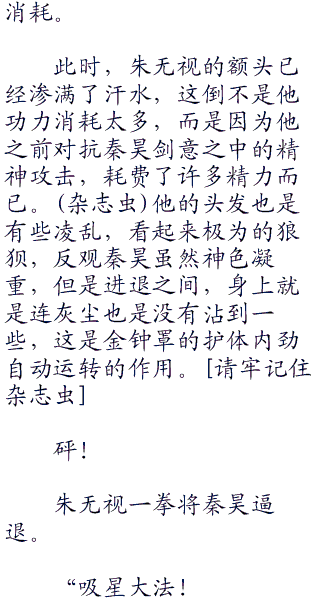 消耗。
此时，朱无视的额头已
经渗满了汗水，这倒不是他
功力消耗太多，而是因为他
之前对抗秦昊剑意之中的精
神攻击，耗费了许多精力而
已。(杂志虫)他的头发也是
有些凌乱，看起来极为的狼
狈，反观秦昊虽然神色凝
重，但是进退之间，身上就
是连灰尘也是没有沾到一
些，这是金钟罩的护体内劲
自动运转的作用。[请牢记住
杂志虫]
砰！
朱无视一拳将秦昊逼
退。
“吸星大法！